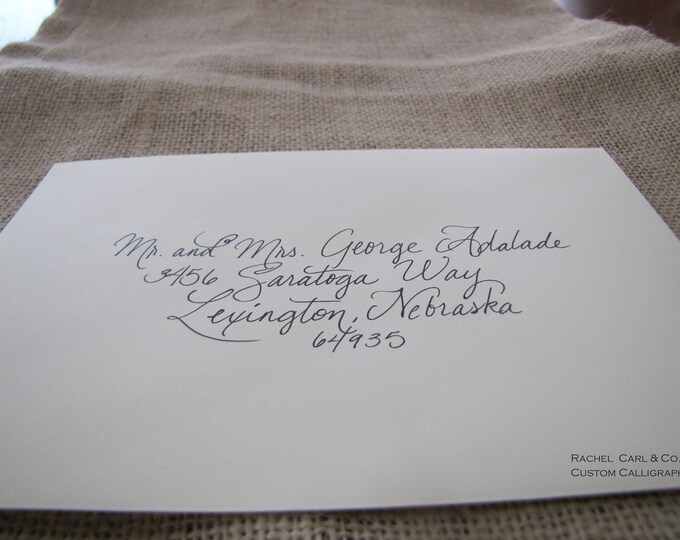 Mr. and Mrs. George Adalade
3456 Saratoga Way
Lexington, Nebraska
64935
RACHEL CARL & CO.
CUSTOM CALLIGRAPH